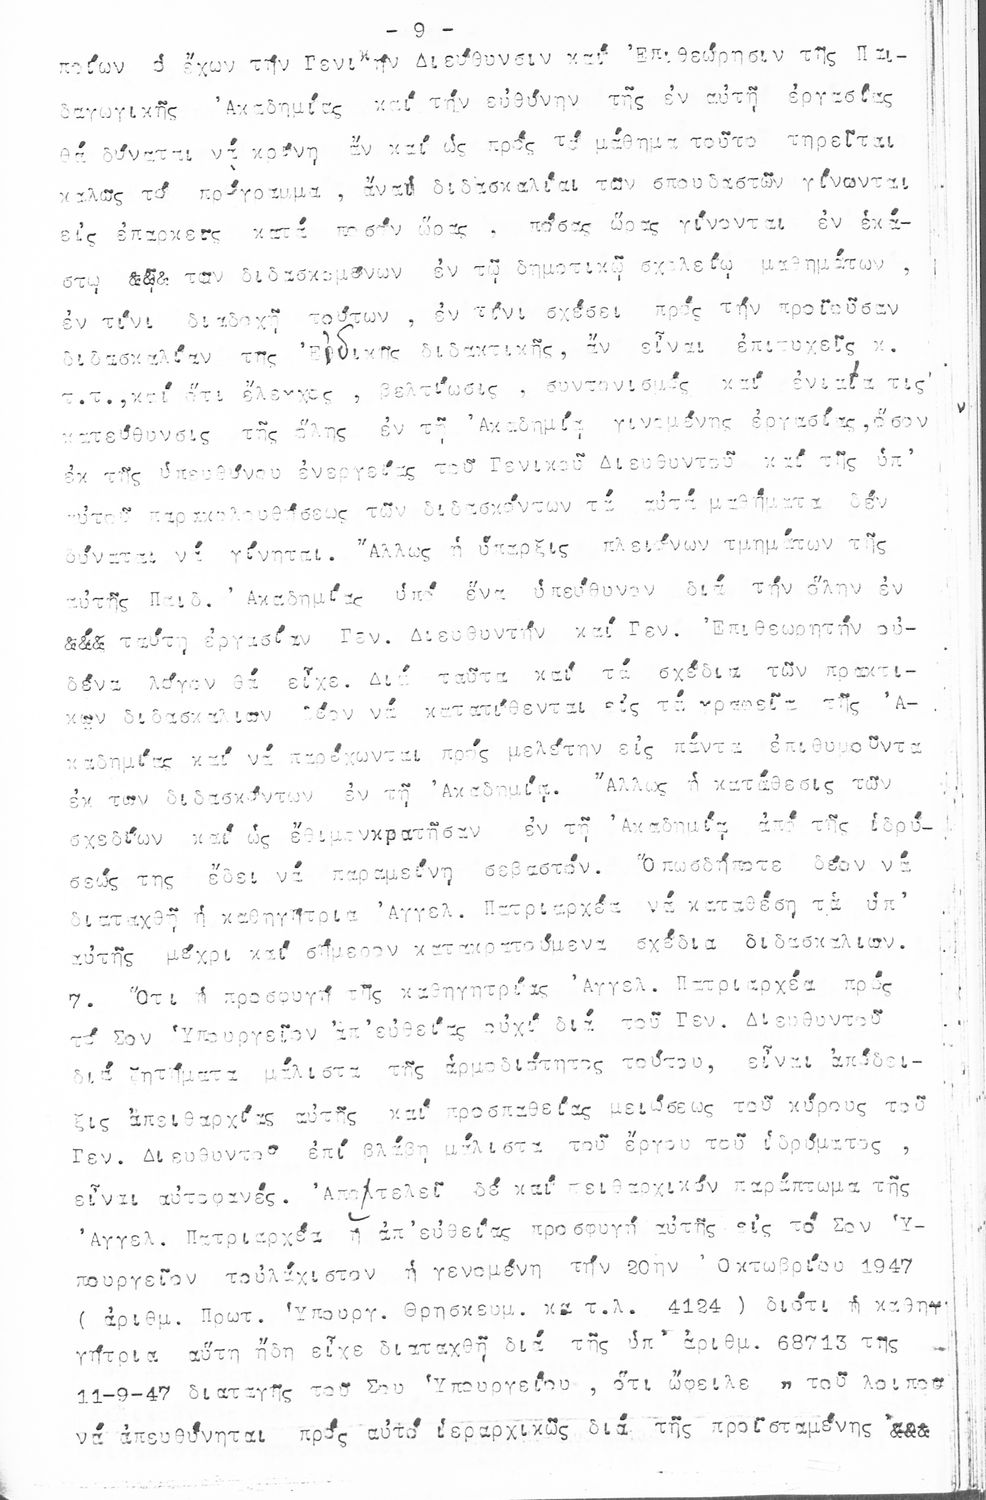 - 9 -
ποίων ὁ ἔχων τήν Γενικήν Διεύθυνσιν καί Ἐπιθεώρησιν τῆς Παι-
δαγωγικῆς Ἀκαδημίας καί τήν εὐθύνην τῆς ἐν αὐτῇ ἐργασίας
θά δύναται νά κρίνῃ ἄν καί ὡς πρός τό μάθημα τοῦτο τηρεῖται
καλῶς τό πρόγραμμα , ἄν αἱ διδασκαλίαι τῶν σπουδαστῶν γίνωνται
εἰς ἐπαρκεῖς κατά ποσόν ὥρας , πόσας ὥρας γίνονται ἐν ἑκά-
στῳ &&& τῶν διδασκομένων ἐν τῷ δημοτικῷ σχολείῳ μαθημάτων ,
ἐν τίνι διαδοχῇ τούτων , ἐν τίνι σχέσει πρός τήν προϊοῦσαν
διδασκαλίαν τῆς Εἰδικῆς διδακτικῆς, ἄν εἶναι ἐπιτυχεῖς κ.
τ.τ.,καί ὅτι ἔλεγχος , βελτίωσις , συντονισμός καί ἑνιαία τις
κατεύθυνσις τῆς ὅλης ἐν τῇ Ἀκαδημίᾳ γινομένης ἐργασίας,ὅσον
ἐκ τῆς ὑπευθύνου ἐνεργείας τοῦ Γενικοῦ Διευθυντοῦ καί τῆς ὑπ'
αὐτοῦ παρακολουθήσεως τῶν διδασκόντων τά αὐτά μαθήματα δέν
δύναται νά γίνηται. Ἄλλως ἡ ὕπαρξις πλειόνων τμημάτων τῆς
αὐτῆς Παιδ. Ἀκαδημίας ὑπό ἕνα ὑπεύθυνον διά τήν ὅλην ἐν
&&& ταύτῃ ἐργασίαν Γεν. Διευθυντήν καί Γεν. Ἐπιθεωρητήν οὐ-
δένα λόγον θά εἶχε. Διά ταῦτα καί τά σχέδια τῶν πρακτι-
κῶν διδασκαλιῶν δέον νά κατατίθενται εἰς τά γραφεῖα τῆς Ἀ-
καδημίας καί νά παρέχωνται πρός μελέτην εἰς πάντα ἐπιθυμοῦντα
ἐκ τῶν διδασκόντων ἐν τῇ Ἀκαδημίᾳ. Ἄλλως ἡ κατάθεσις τῶν
σχεδίων καί ὡς ἔθιμονκρατῆσαν ἐν τῇ Ἀκαδημίᾳ ἀπό τῆς ἱδρύ-
σεώς της ἔδει νά παραμείνῃ σεβαστόν. Ὁπωσδήποτε δέον νά
διαταχθῇ ἡ καθηγήτρια Ἀγγελ. Πατριαρχέα νά καταθέσῃ τά ὑπ'
αὐτῆς μέχρι καί σήμερον κατακρατούμενα σχέδια διδασκαλιῶν.
7. Ὅτι ἡ προσφυγή τῆς καθηγητρίας Ἀγγελ. Πατριαρχέα πρός
τό Σον Ὑπουργεῖον ἀπ'εὐθείας οὐχί διά τοῦ Γεν. Διευθυντοῦ
διά ζητήματα μάλιστα τῆς ἁρμοδιότητος τούτου, εἶναι ἀπόδει-
ξις ἀπειθαρχίας αὐτῆς καί προσπαθείας μειώσεως τοῦ κύρους τοῦ
Γεν. Διευθυντοῦ ἐπί βλάβῃ μάλιστα τοῦ ἔργου τοῦ ἱδρύματος ,
εἶναι αὐτοφανές. Ἀποτελεῖ δέ καί πειθαρχικόν παράπτωμα τῆς
Ἀγγελ. Πατριαρχέα ἡ ἀπ'εὐθείας προσφυγή αὐτῆς εἰς τό Σον Ὑ-
πουργεῖον τοὐλάχιστον ἡ γενομένη τήν 20ήν Ὀκτωβρίου 1947
( ἀριθμ. Πρωτ. Ὑπουργ. Θρησκευμ. κα τ.λ. 4124 ) διότι ἡ καθη
γήτρια αὕτη ἤδη εἶχε διαταχθῆ διά τῆς ὑπ' ἀριθμ. 68713 τῆς
11-9-47 διαταγῆς τοῦ Σου Ὑπουργείου , ὅτι ὤφειλε " τοῦ λοιποῦ
νά ἀπευθύνηται πρός αὐτό ἱεραρχικῶς διά τῆς προϊσταμένης &&&